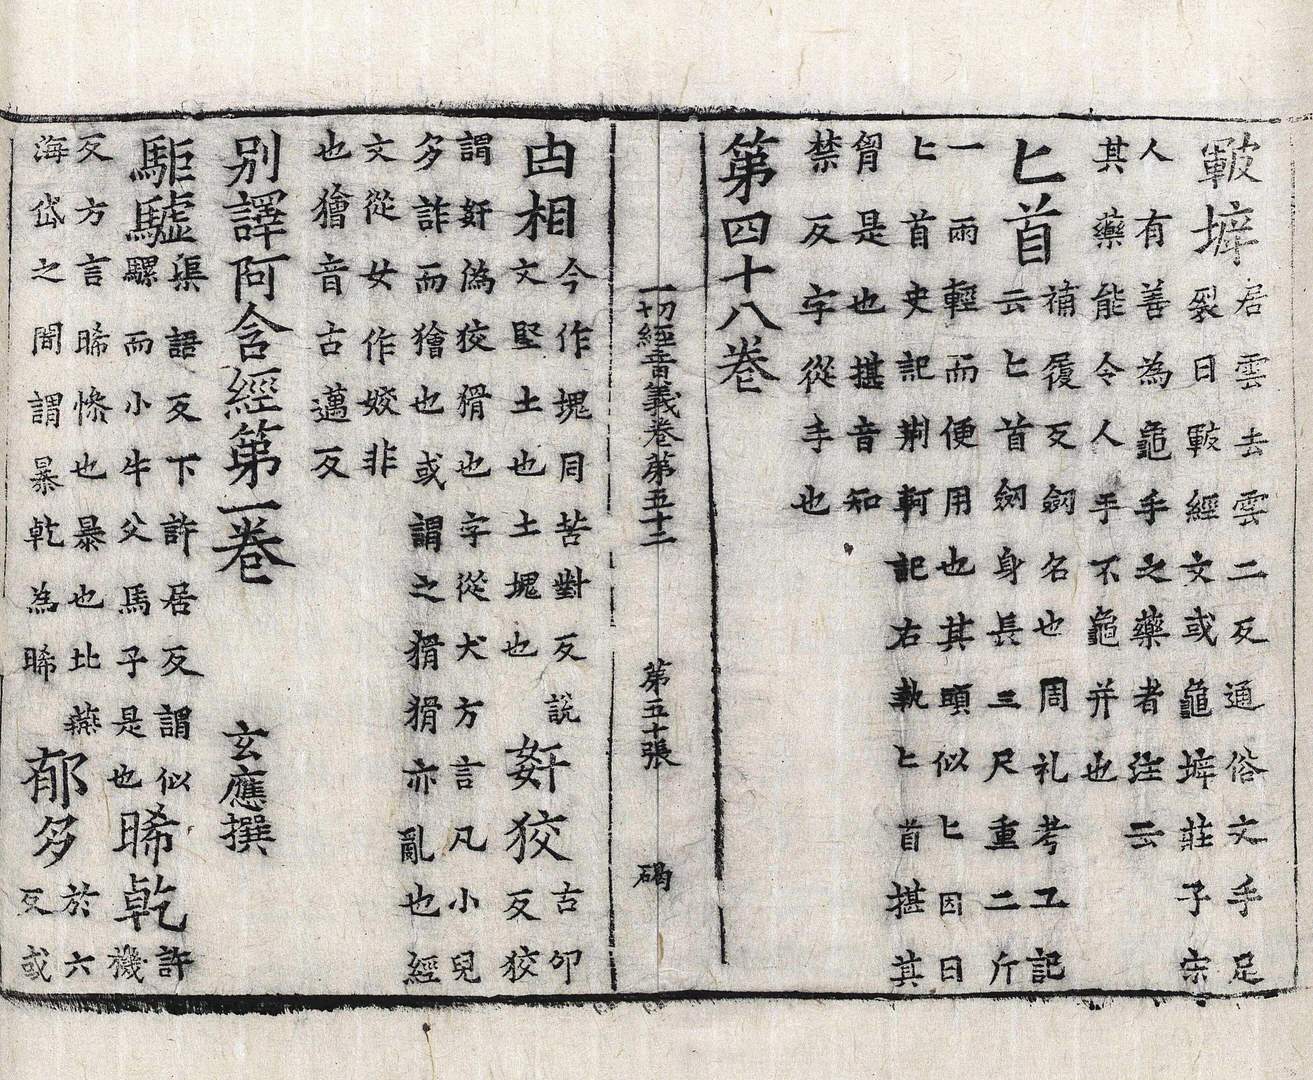 皸𡍩
居雲去雲二反通俗文手足
裂曰皸經文或龜𡍩莊子宋
人有善為龜手之藥者注云
其藥能令人手不龜并也
匕首
補履反劒名也周礼考工記
云匕首劒身長三尺重二斤
一雨輕而便用也其頭似匕因曰
匕首史記荆軻記右執匕首揕其
胷是也揕音知
禁反字從手也
第四十八卷
一切經音義卷第五十三 第五十張 碣
凷相
今作塊同苦對反說
文堅土也土塊也
姧狡
古卯
反狡
謂姧偽狡猾也字從犬方言凡小兒
多詐而獪也或謂之猾猾亦亂也經
文從女作姣非
也獪音古邁反
別譯阿含經第一卷 玄應撰
駏驉
渠語反下許居反謂似
騾而小牛父馬子是也
晞乾
許
機
反方言晞惨也暴也北燕
海岱之間謂暴乾為晞
郁多
於六
反或